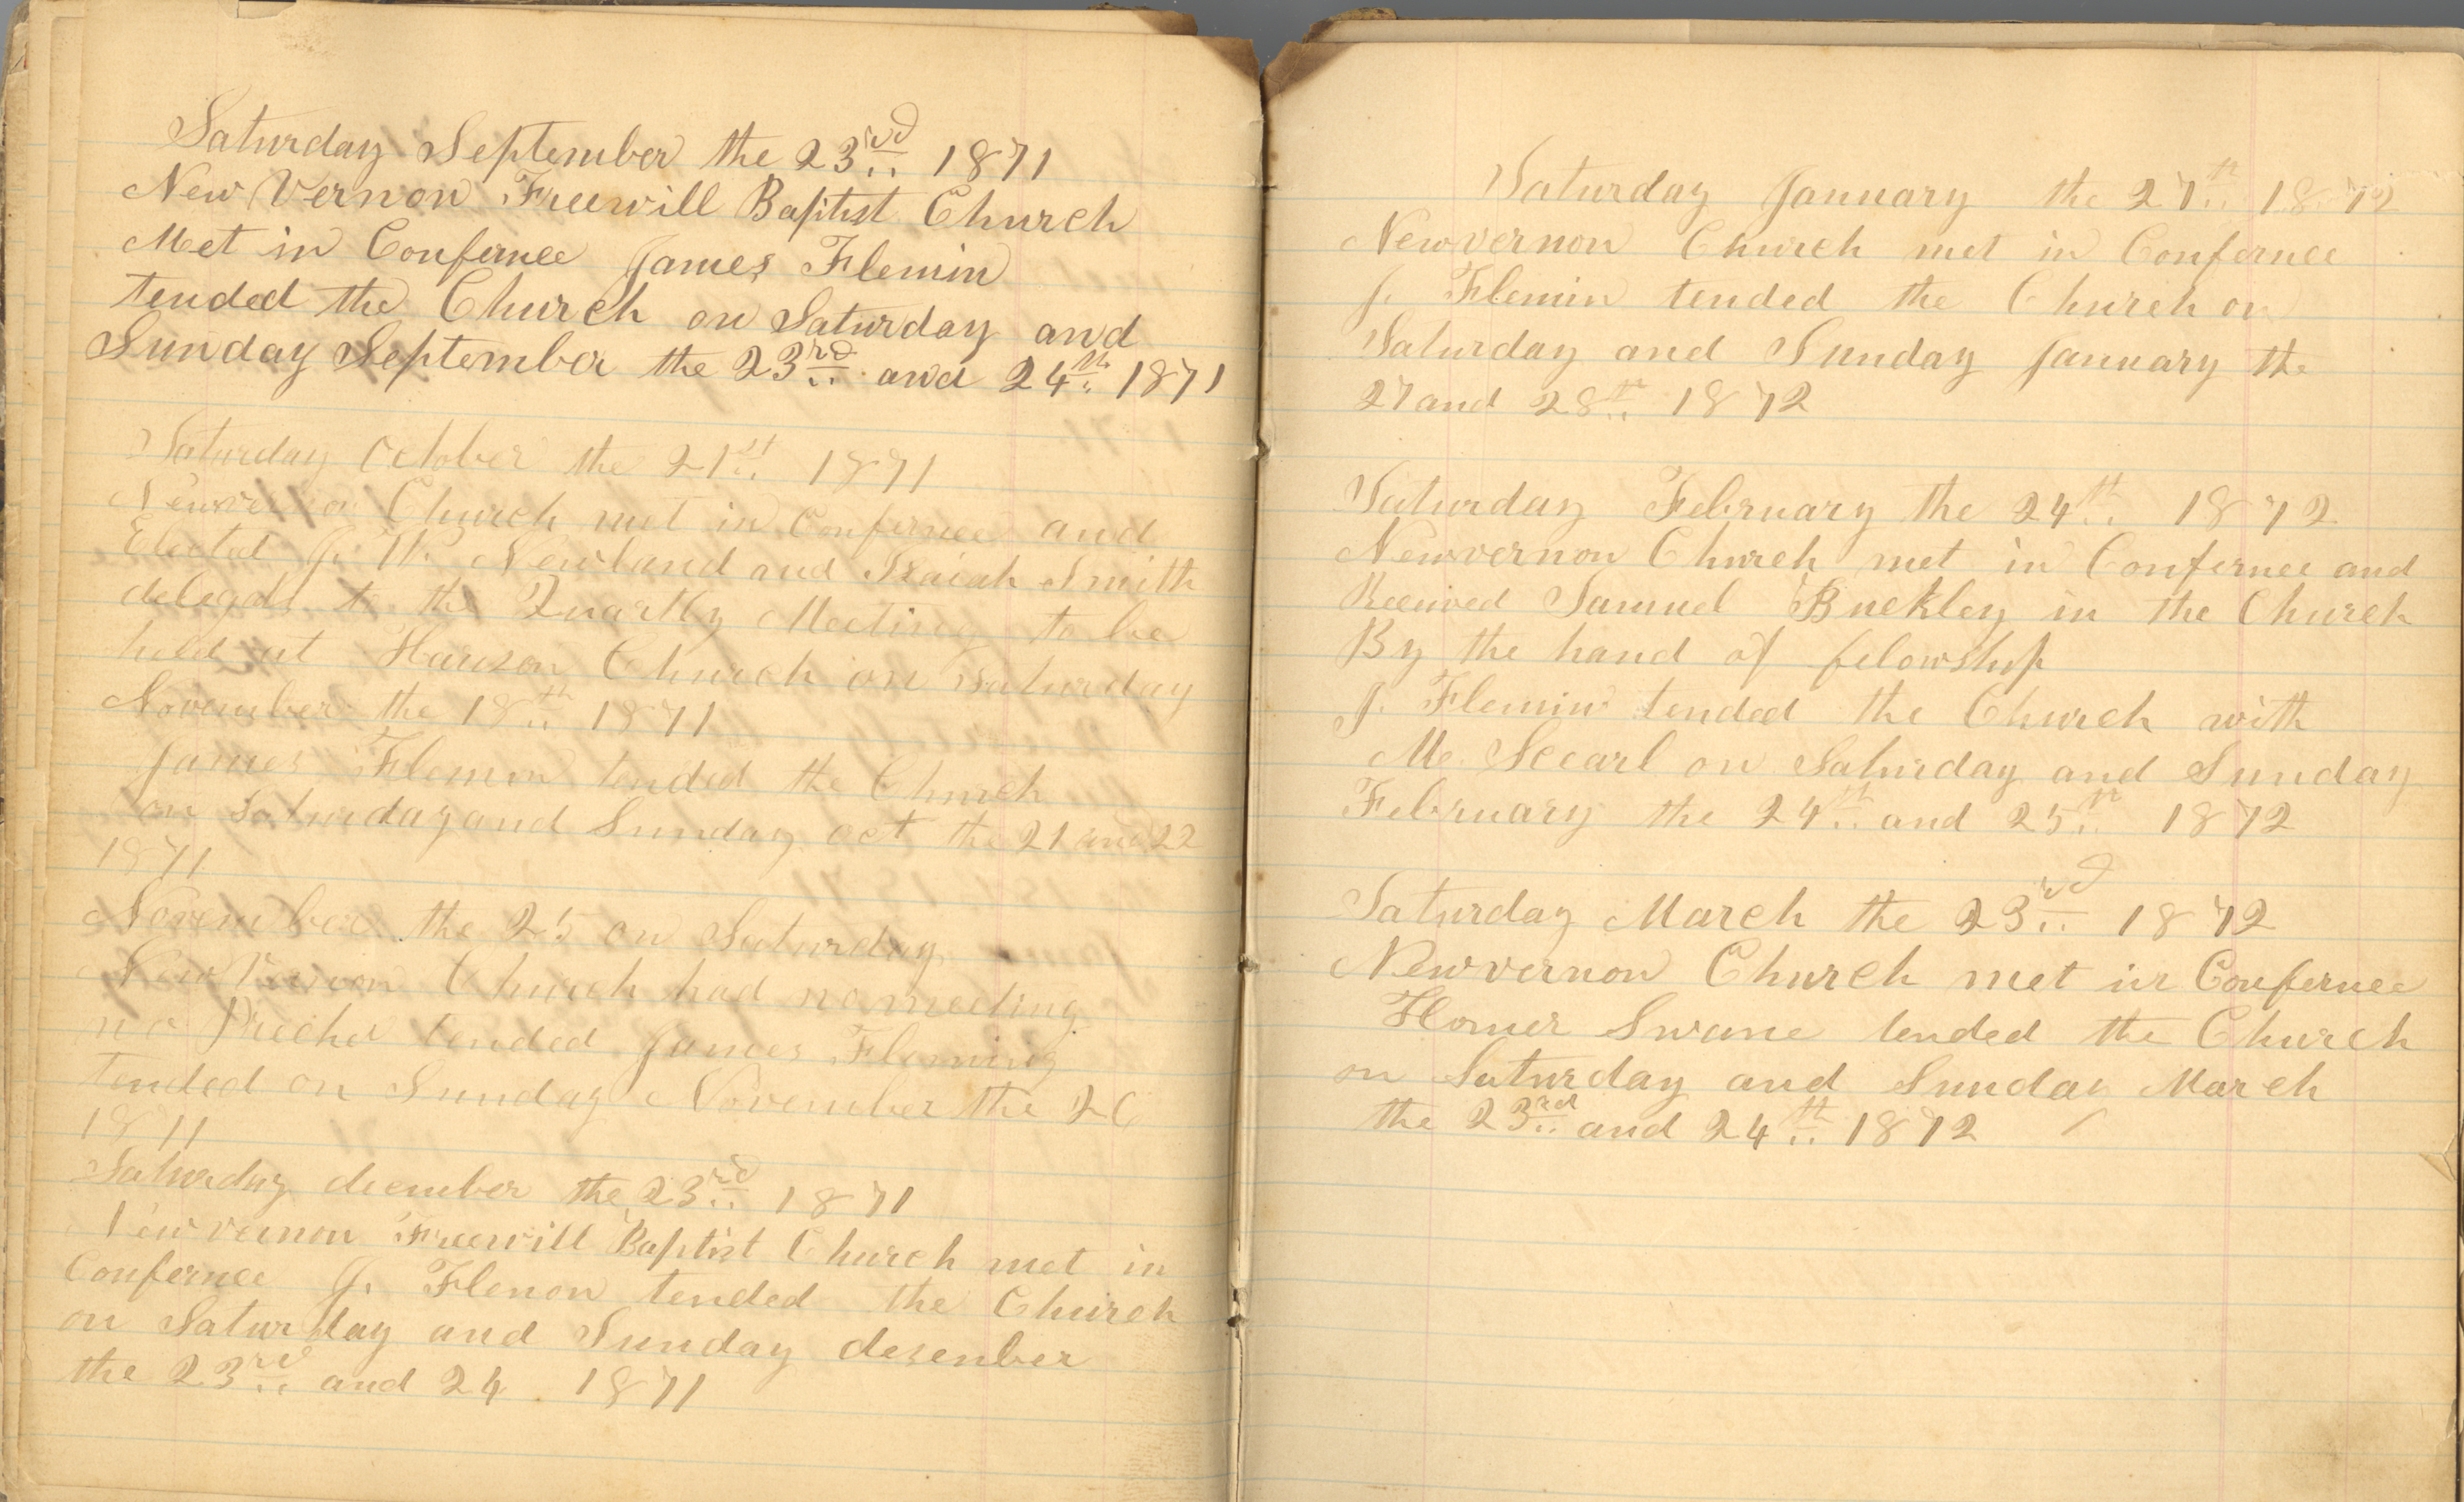 Saturday September the 23rd 1871
New Vernon Freewill Baptist Church
Met in Confernce James Flemin
tended the Church on Saturday and
Sunday September the 23rd and 24th 1871
Saturday October the 21st 1871
Newvernon Church met in Confernce and
Elected J. Newland and Isaiah Smith
delegats to the Quartly Meeting to be
held at Church on Saturday
November the 18th 1871
James Flemin tended the Church
on Saturday and Sunday oct the 21 and 22
1871
November the 25 on Saturday
New Vernon Church had no meeting
no Precher tended James Fleming
tended on Sunday November the 26
1871
Saturday december the 23rd 1871
Newvernon Freewill Baptist Church met in
Confernce J. Flenon tended the Church
on Saturday and Sunday desenber
the 23rd and 24 1871
Saturday January the 27th 1872
Newvernon Church met in Confernce
J. Flemin tended the Church on
Saturday and Sunday January the
27 and 28th 1872
Saturday February the 24th 1872
Newvernon Church met in Confernce and
Received Samuel Buckley in the Church
By the hand of felowship
J. Flemin tended the Church with
on Saturday and Sunday
February the 24th and 25th 1872
Saturday March the 23rd 1872
Newvernon Church met in Confernce
Homer Swane tended the Church
on Saturday and Sunday March
the 23rd and 24th 1872